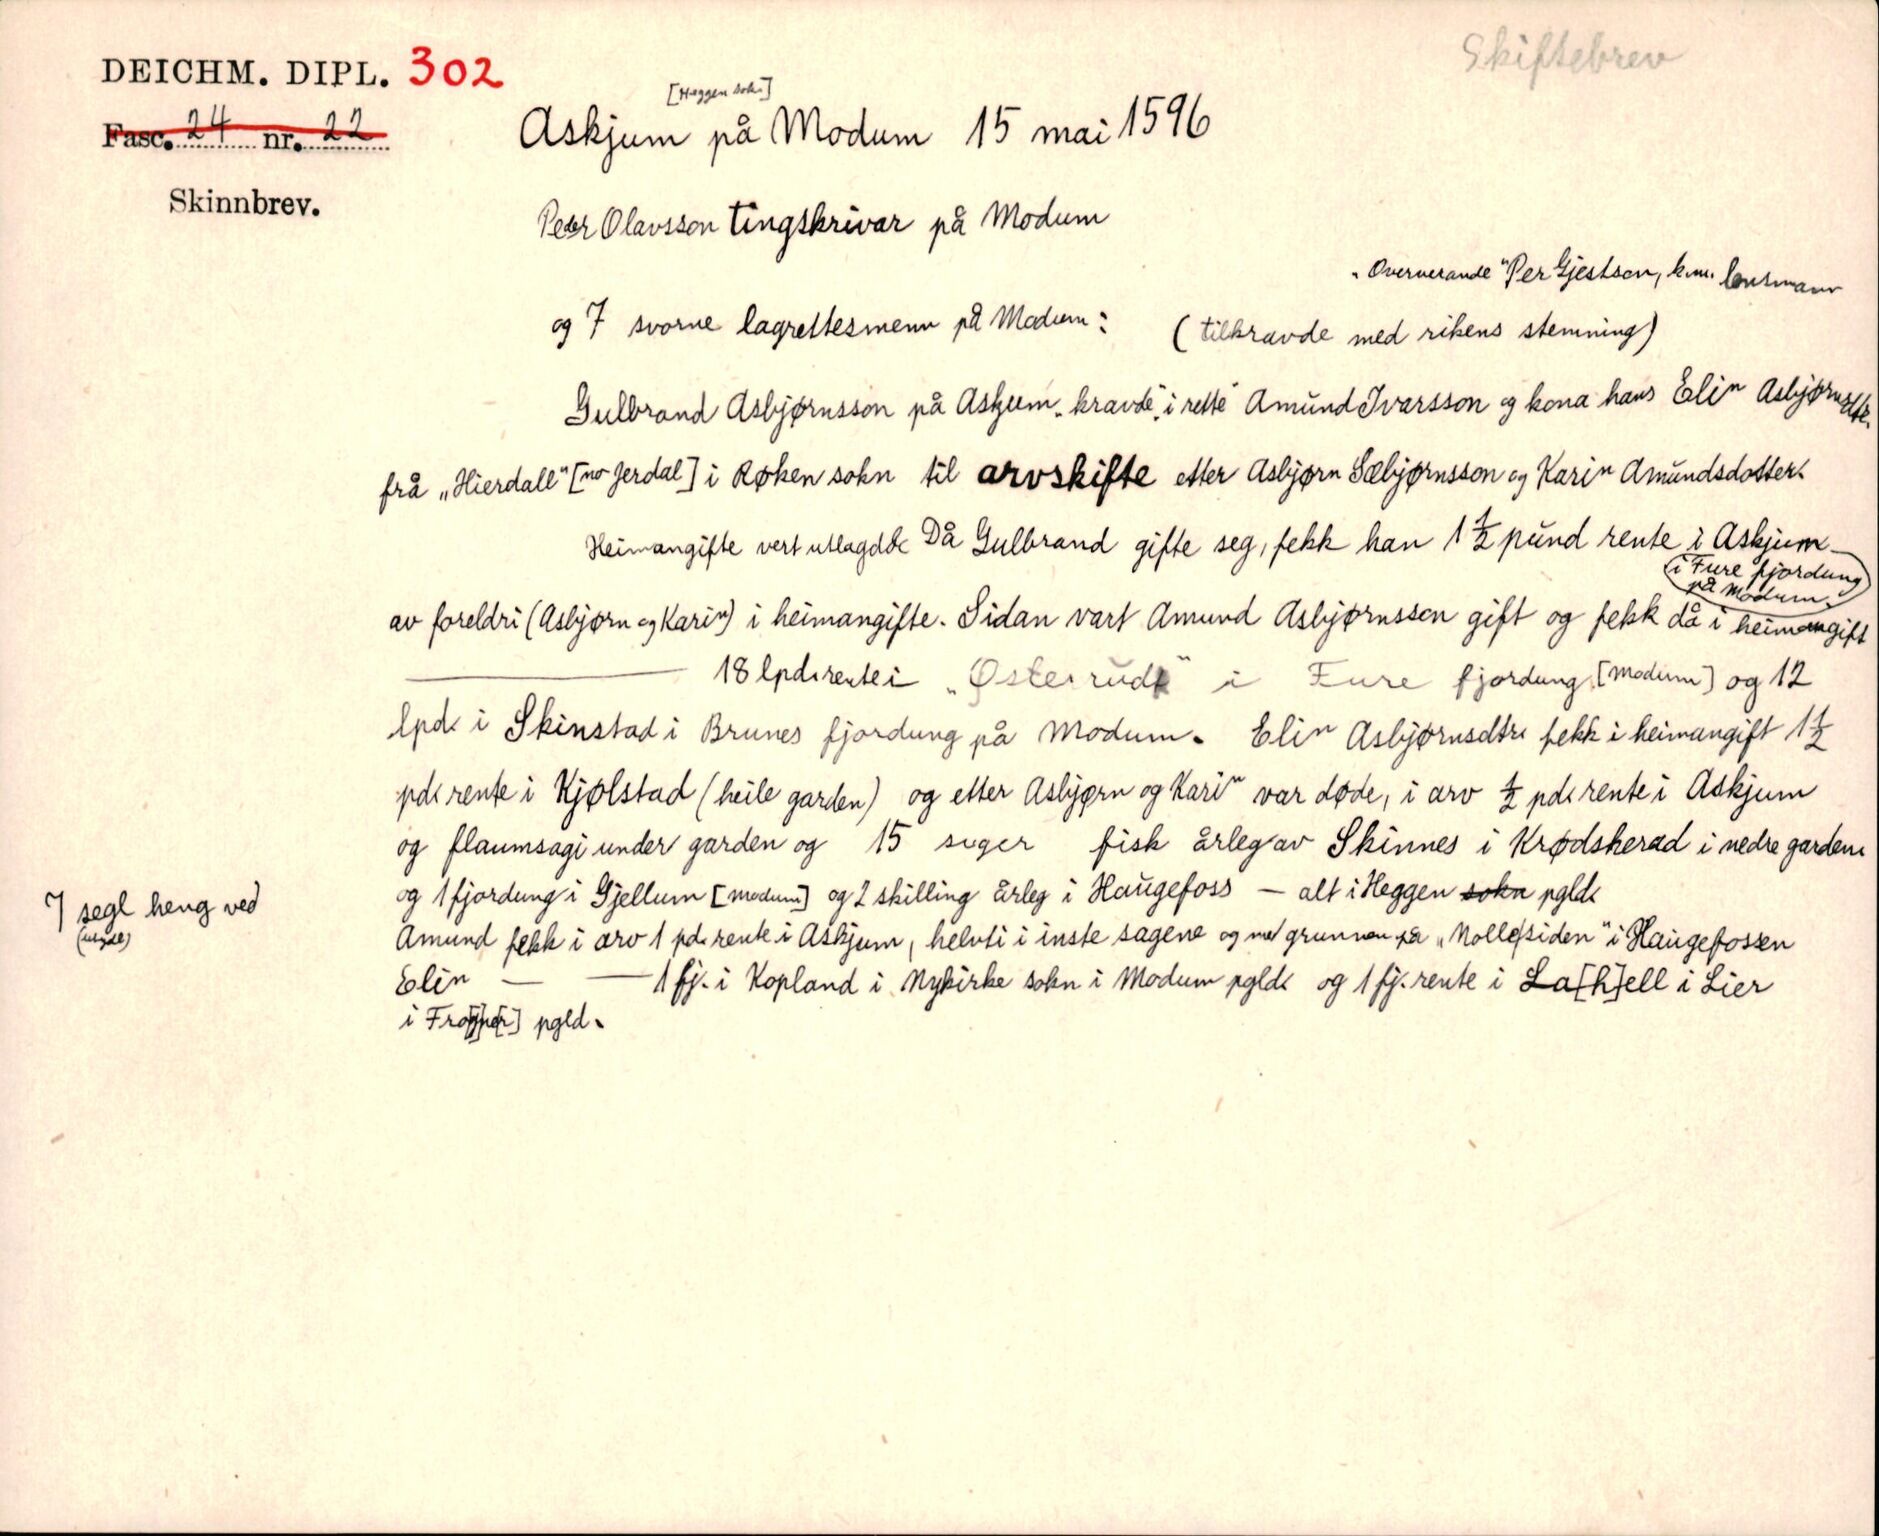 Skiftebrev
DEICHM. DIPL. 302
Fasc. 24 nr. 22
Skinnbrev.
[Heggen sokn]
Askjum på Modum 15 mai 1596
Peder Olavsson tingskrivar på Modum
"Oververande" Per Gjestson, k.m. lensmann
og 7 svorne lagrettesmenn på Modum: (tilkravde med rikens stemning)
Gulbrand Asbjørnsson på Askjum "kravde i rette" Amund Ivarsson og kona hans Elin Asbjørnsdtr.
frå "Hierdall" [no Jerdal] i Røken sokn til arvskifte etter Asbjørn Sæbjørnsson og Karin Amundsdotter.
Heimangifte vert utlagd: Då Gulbrand gifte seg, fekk han 1 1/2 pund rente i Askjum
i Fure fjordung
på Modum.
av foreldri (Asbjørn og Karin) i heimangifte. Sidan vart Amund Asbjørnsson gift og fekk då i heimangift
18 lpd. rente i "Østerud" i Fure fjordung [Modum] og 12
lpd. i Skinstad i Brunes fjordung på Modum. Elin Asbjørnsdtr. fekk i heimangift 1 1/2
pd. rente i Kjølstad (heile garden) og etter Asbjørn og Karin var døde, i arv 1/2 pd. rente i Askjum
og flaumsagi under garden og 15 fisk årleg av Skinnes i Krødsherad i nedre garden.
og 1 fjordung i Gjellum [Modum] og 2 skilling årleg i Haugefoss — alt i Heggen sokn pgld.
7 segl heng ved
Amund fekk i arv 1 pd. rente i Askjum, helvti i inste sagene og med grunnen på "Mollesiden" i Haugefossen
Elin — — 1 fj. i Kopland i Nykirke sokn i Modum pgld. og 1 fj. rente i La[h]ell i Lier
i Fro[gner] pgld.